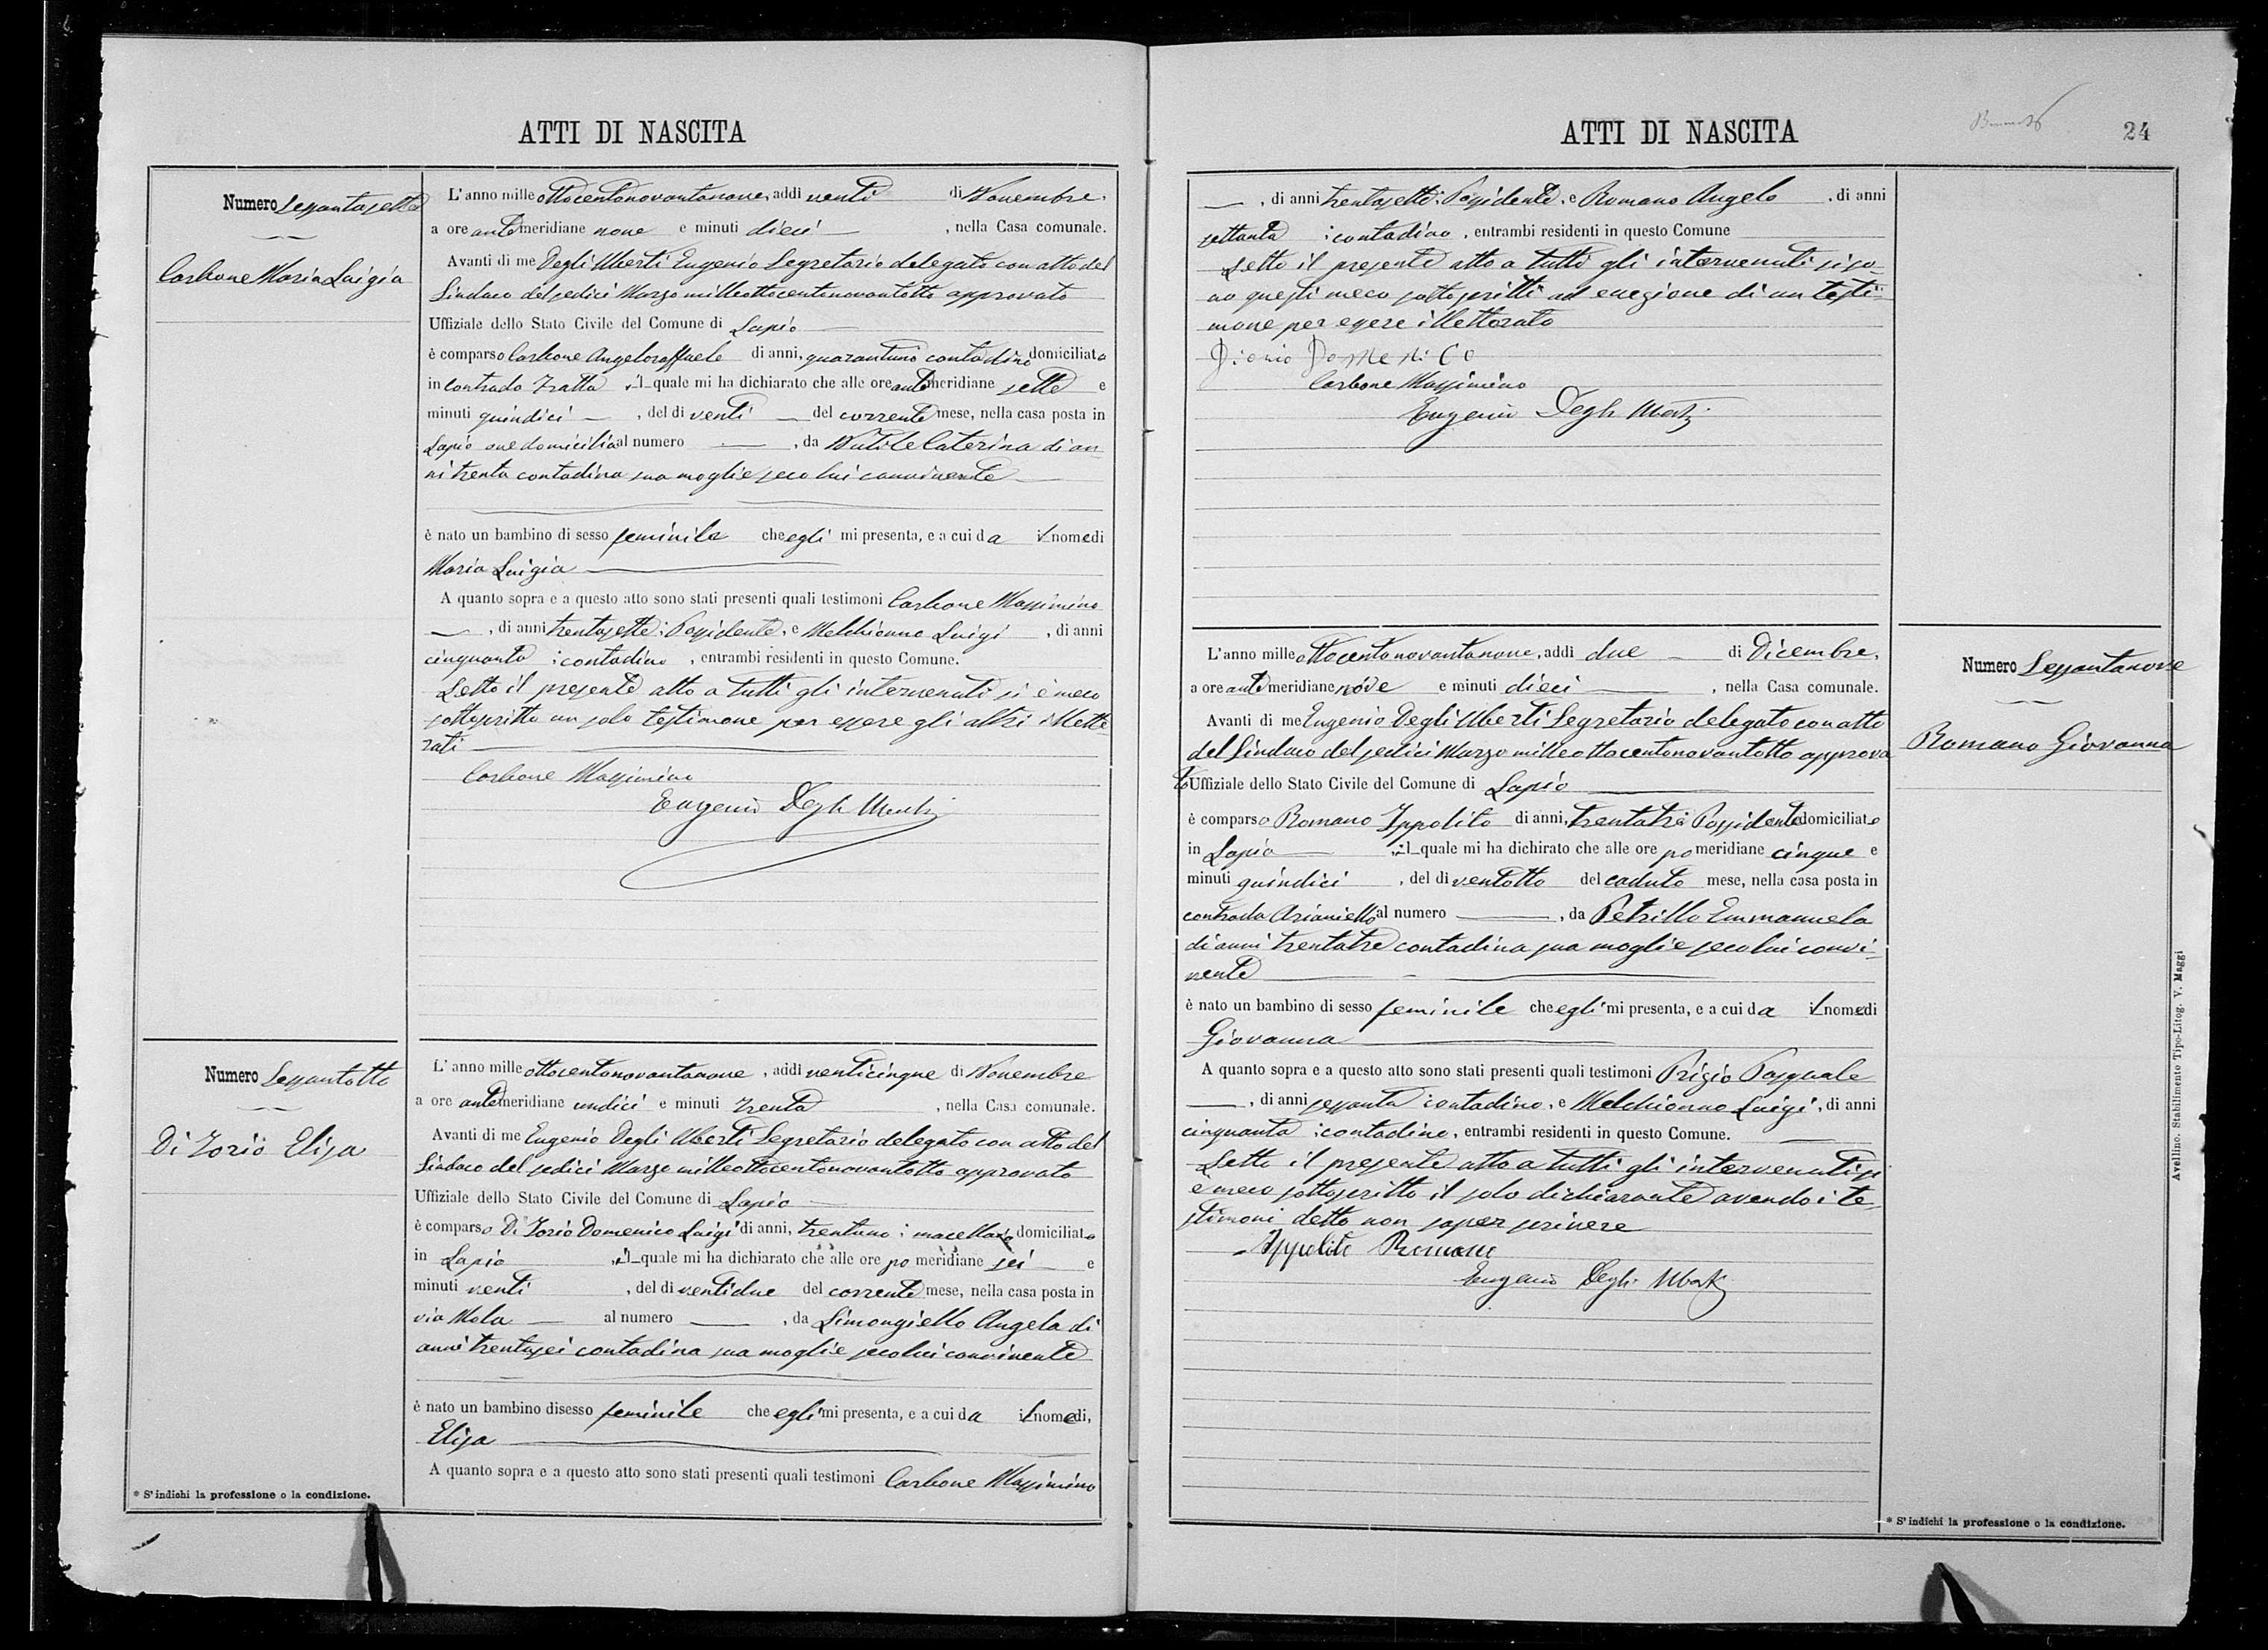 ATTI DI NASCITA
Numero Sessantasette
Carbone Maria Luigia
L'anno mille ottocentonovantanove, addì venti di Novembre,
a ore antemeridiane nove e minuti dieci, nella Casa comunale.
Avanti di me Degli Uberti Eugenio Segretario delegato con atto del
Sindaco del sedici Marzo milleottocentonovantotto approvato
Uffiziale dello Stato Civile del Comune di Lapio
è comparso Carbone Angeloraffaele di anni, quarantuno contadino domiciliato
in contrada Tratta il quale mi ha dichiarato che alle ore antemeridiane sette e
minuti quindici, del dì venti del corrente mese, nella casa posta in
Lapio ove domicilia al numero —, da Nutile Caterina di an
ni trenta contadina sua moglie seco lui convivente
è nato un bambino di sesso feminile che egli mi presenta, e a cui da il nome di
Maria Luigia
A quanto sopra e a questo atto sono stati presenti quali testimoni Carbone Massimino
—, di anni trentasette; Possidente, e Melchionno Luigi, di anni
cinquanta; contadino, entrambi residenti in questo Comune.
Letto il presente atto a tutti gli intervenuti si è meco
sottoscritto un solo testimone per essere gli altri illette
rati
Carbone Massimino
Eugenio Degli Uberti
Numero Sessantotto
Di Iorio Elisa
L'anno mille ottocentonovantanove, addì venticinque di Novembre
a ore antemeridiane undici e minuti trenta, nella Casa comunale.
Avanti di me Eugenio Degli Uberti Segretario delegato con atto del
Sindaco del sedici Marzo milleottocentonovantotto approvato
Uffiziale dello Stato Civile del Comune di Lapio
è comparso Di Iorio Domenico Luigi di anni, trentuno; macellaio domiciliato
in Lapio, il quale mi ha dichiarato che alle ore pomeridiane sei e
minuti venti, del dì ventidue del corrente mese, nella casa posta in
via Mola — al numero —, da Limongiello Angela di
anni trentasei contadina sua moglie seco lui convivente
è nato un bambino di sesso feminile che egli mi presenta, e a cui da il nome di,
Elisa
A quanto sopra e a questo atto sono stati presenti quali testimoni Carbone Massimino
* S'indichi la professione o la condizione.
ATTI DI NASCITA
24
—, di anni trentasette; Possidente, e Romano Angelo, di anni
settanta; contadino, entrambi residenti in questo Comune
Letto il presente atto a tutti gli intervenuti si so-
no questi meco sottoscritti ad eccezione di un testi-
mone per essere illetterato
Diorio Domenico
Carbone Massimino
Eugenio Degli Uberti
L'anno mille ottocentonovantanove, addì due di Dicembre,
a ore antemeridiane nove e minuti dieci, nella Casa comunale.
Avanti di me Eugenio Degli Uberti Segretario delegato con atto
del Sindaco del sedici Marzo milleottocentonovantotto approva
to Uffiziale dello Stato Civile del Comune di Lapio
è comparso Romano Ippolito di anni, trentatrè Possidente domiciliato
in Lapio il quale mi ha dichirato che alle ore pomeridiane cinque e
minuti quindici, del dì ventotto del caduto mese, nella casa posta in
contrada Arianiello al numero —, da Petrillo Emmanuela
di anni trentatre contadina sua moglie seco lui convi-
vente
è nato un bambino di sesso feminile che egli mi presenta, e a cui da il nome di
Giovanna
A quanto sopra e a questo atto sono stati presenti quali testimoni Prizio Pasquale
—, di anni sessanta contadino, e Melchionno Luigi, di anni
cinquanta; contadino, entrambi residenti in questo Comune.
Letto il presente atto a tutti gli intervenuti si
è meco sottoscritto il solo dichiarante avendo i te-
stimoni detto non saper scrivere
Ippolito Romano
Eugenio Degli Uberti
Numero Sessantanove
Romano Giovanna
Avellino. Stabilimento Tipo-Litog. V. Maggi
* S'indichi la professione o la condizione.